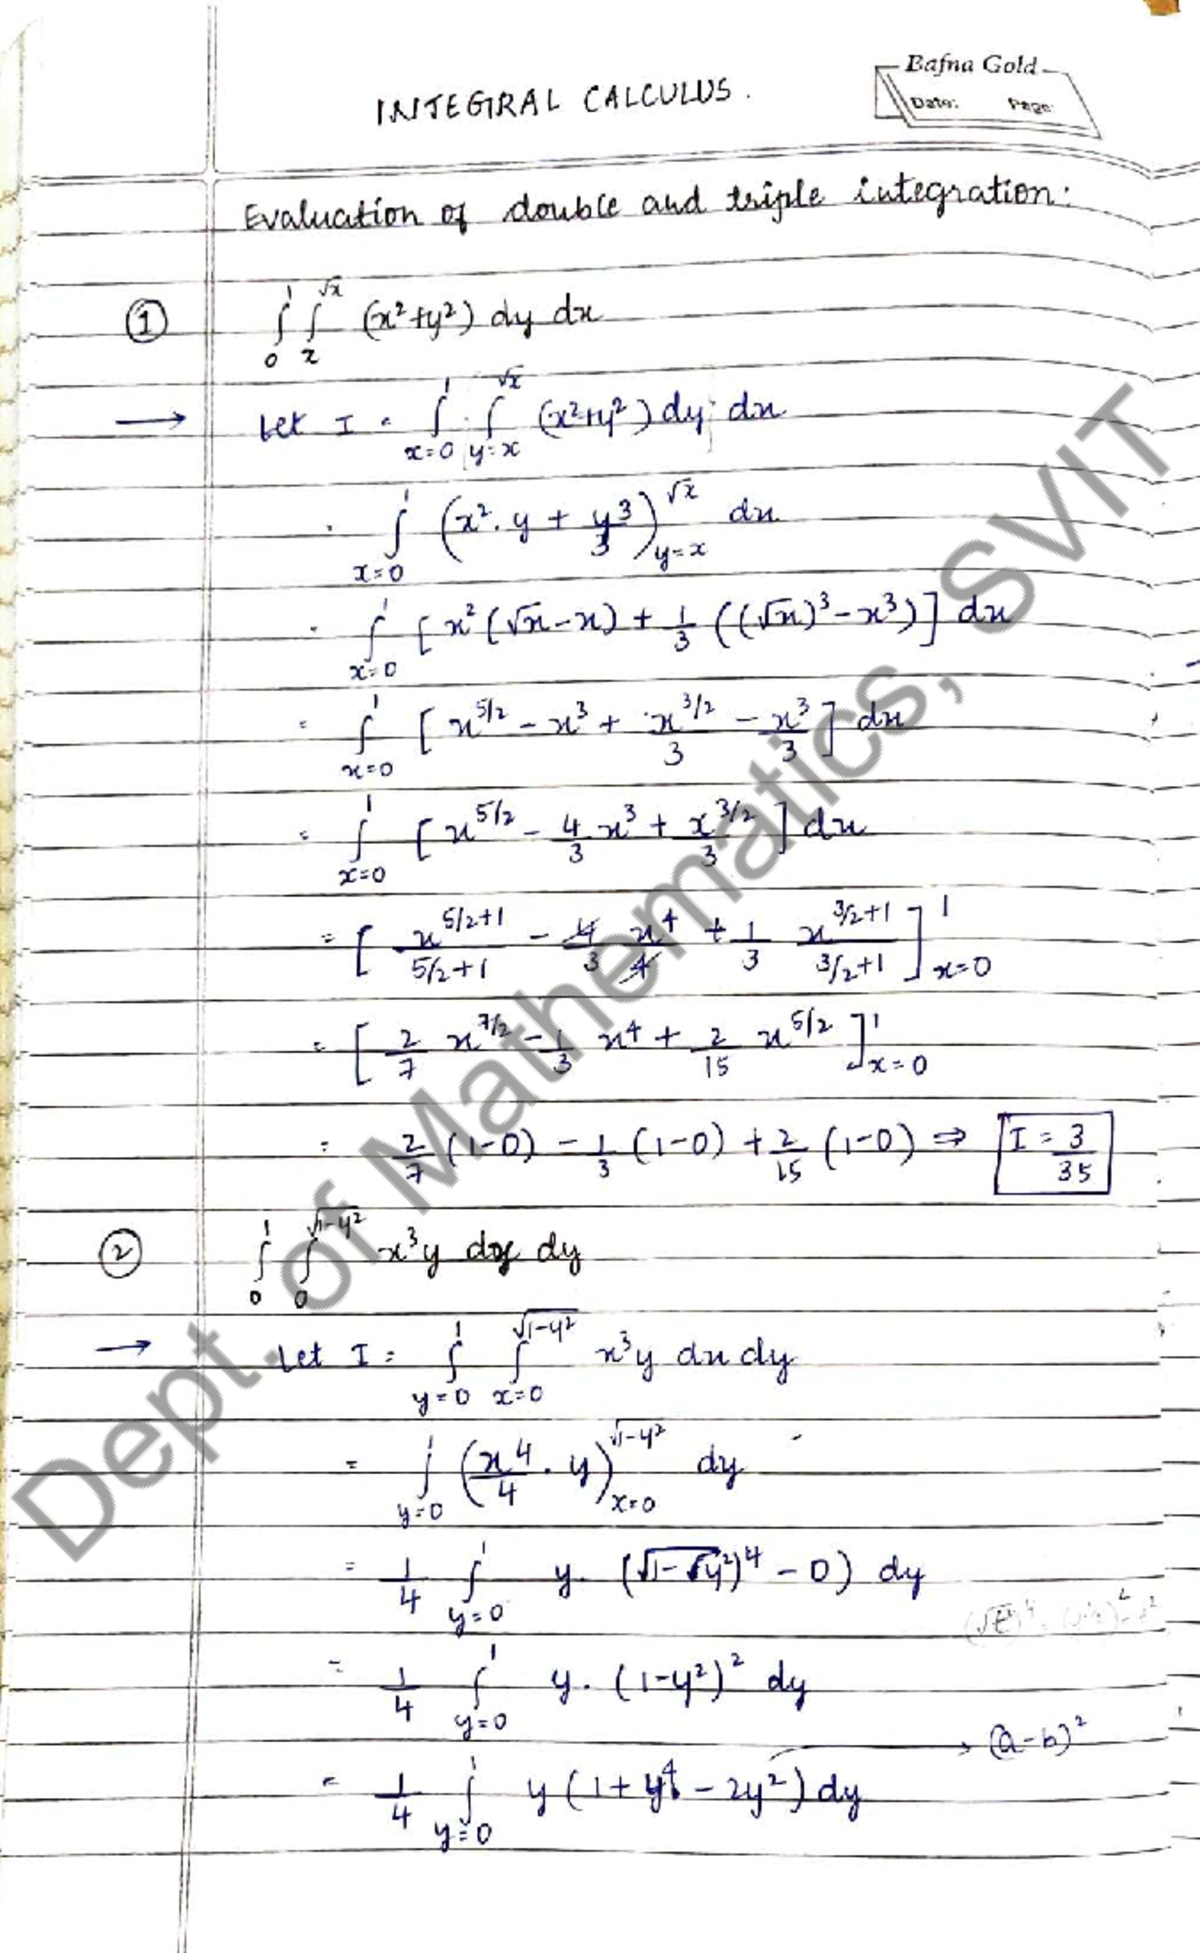 Bafna Gold
Date: Page:
INTEGRAL CALCULUS.
Evaluation of double and triple integration:
① ∫₀¹ ∫ₓ^√x (x²+y²) dy dx
→ Let I = ∫_{x=0}^{1} ∫_{y=x}^{√x} (x²+y²) dy dx
∫_{x=0}^{1} (x².y + y³/3)_{y=x}^{√x} dx
∫_{x=0}^{1} [x²(√x-x) + 1/3 ((√x)³-x³)] dx
= ∫_{x=0}^{1} [x^{5/2} - x³ + x^{3/2}/3 - x³/3] dx
= ∫_{x=0}^{1} [x^{5/2} - 4/3 x³ + x^{3/2}/3] dx
= [x^{5/2+1}/(5/2+1) - 4/3 x⁴/4 + 1/3 x^{3/2+1}/(3/2+1)]_{x=0}^{1}
= [2/7 x^{7/2} - 1/3 x⁴ + 2/15 x^{5/2}]_{x=0}^{1}
= 2/7 (1-0) - 1/3 (1-0) + 2/15 (1-0) ⇒ I = 3/35
② ∫₀¹ ∫₀^{√(1-y²)} x³y dx dy
→ Let I = ∫_{y=0}^{1} ∫_{x=0}^{√(1-y²)} x³y dx dy
= ∫_{y=0}^{1} (x⁴/4 . y)_{x=0}^{√(1-y²)} dy
= 1/4 ∫_{y=0}^{1} y. (√(1-y²)⁴ - 0) dy
= 1/4 ∫_{y=0}^{1} y. (1-y²)² dy
→ (a-b)²
= 1/4 ∫_{y=0}^{1} y (1 + y⁴ - 2y²) dy
Dept. of Mathematics, SVIT